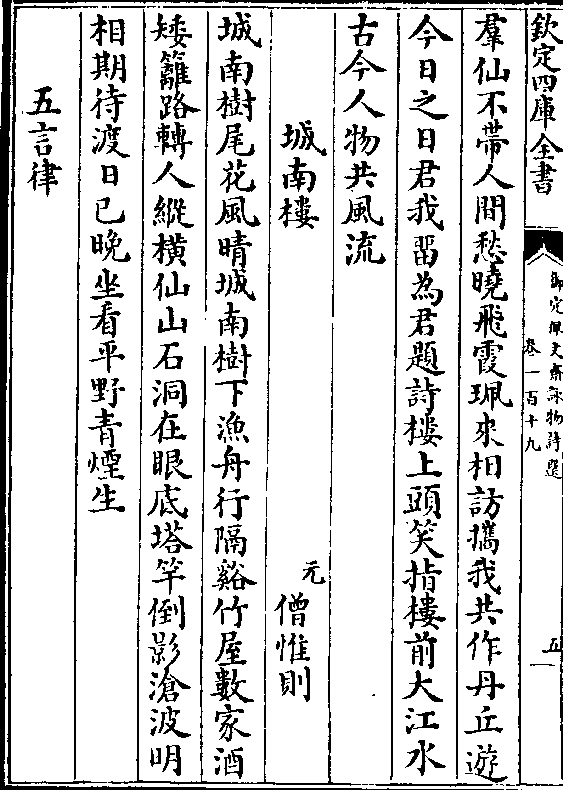 欽定四庫全書
御定佩文齋詠物詩選
卷一百十九
五
羣仙不帶人間愁曉飛霞珮來相訪攜我共作丹丘遊
今日之日君我留為君題詩樓上頭笑指樓前大江水
古今人物共風流
城南樓
元
僧惟則
城南樹尾花風晴城南樹下漁舟行隔谿竹屋數家酒
矮籬路轉人縱橫仙山石洞在眼底塔竿倒影滄波明
相期待渡日已晚坐看平野青煙生
五言律